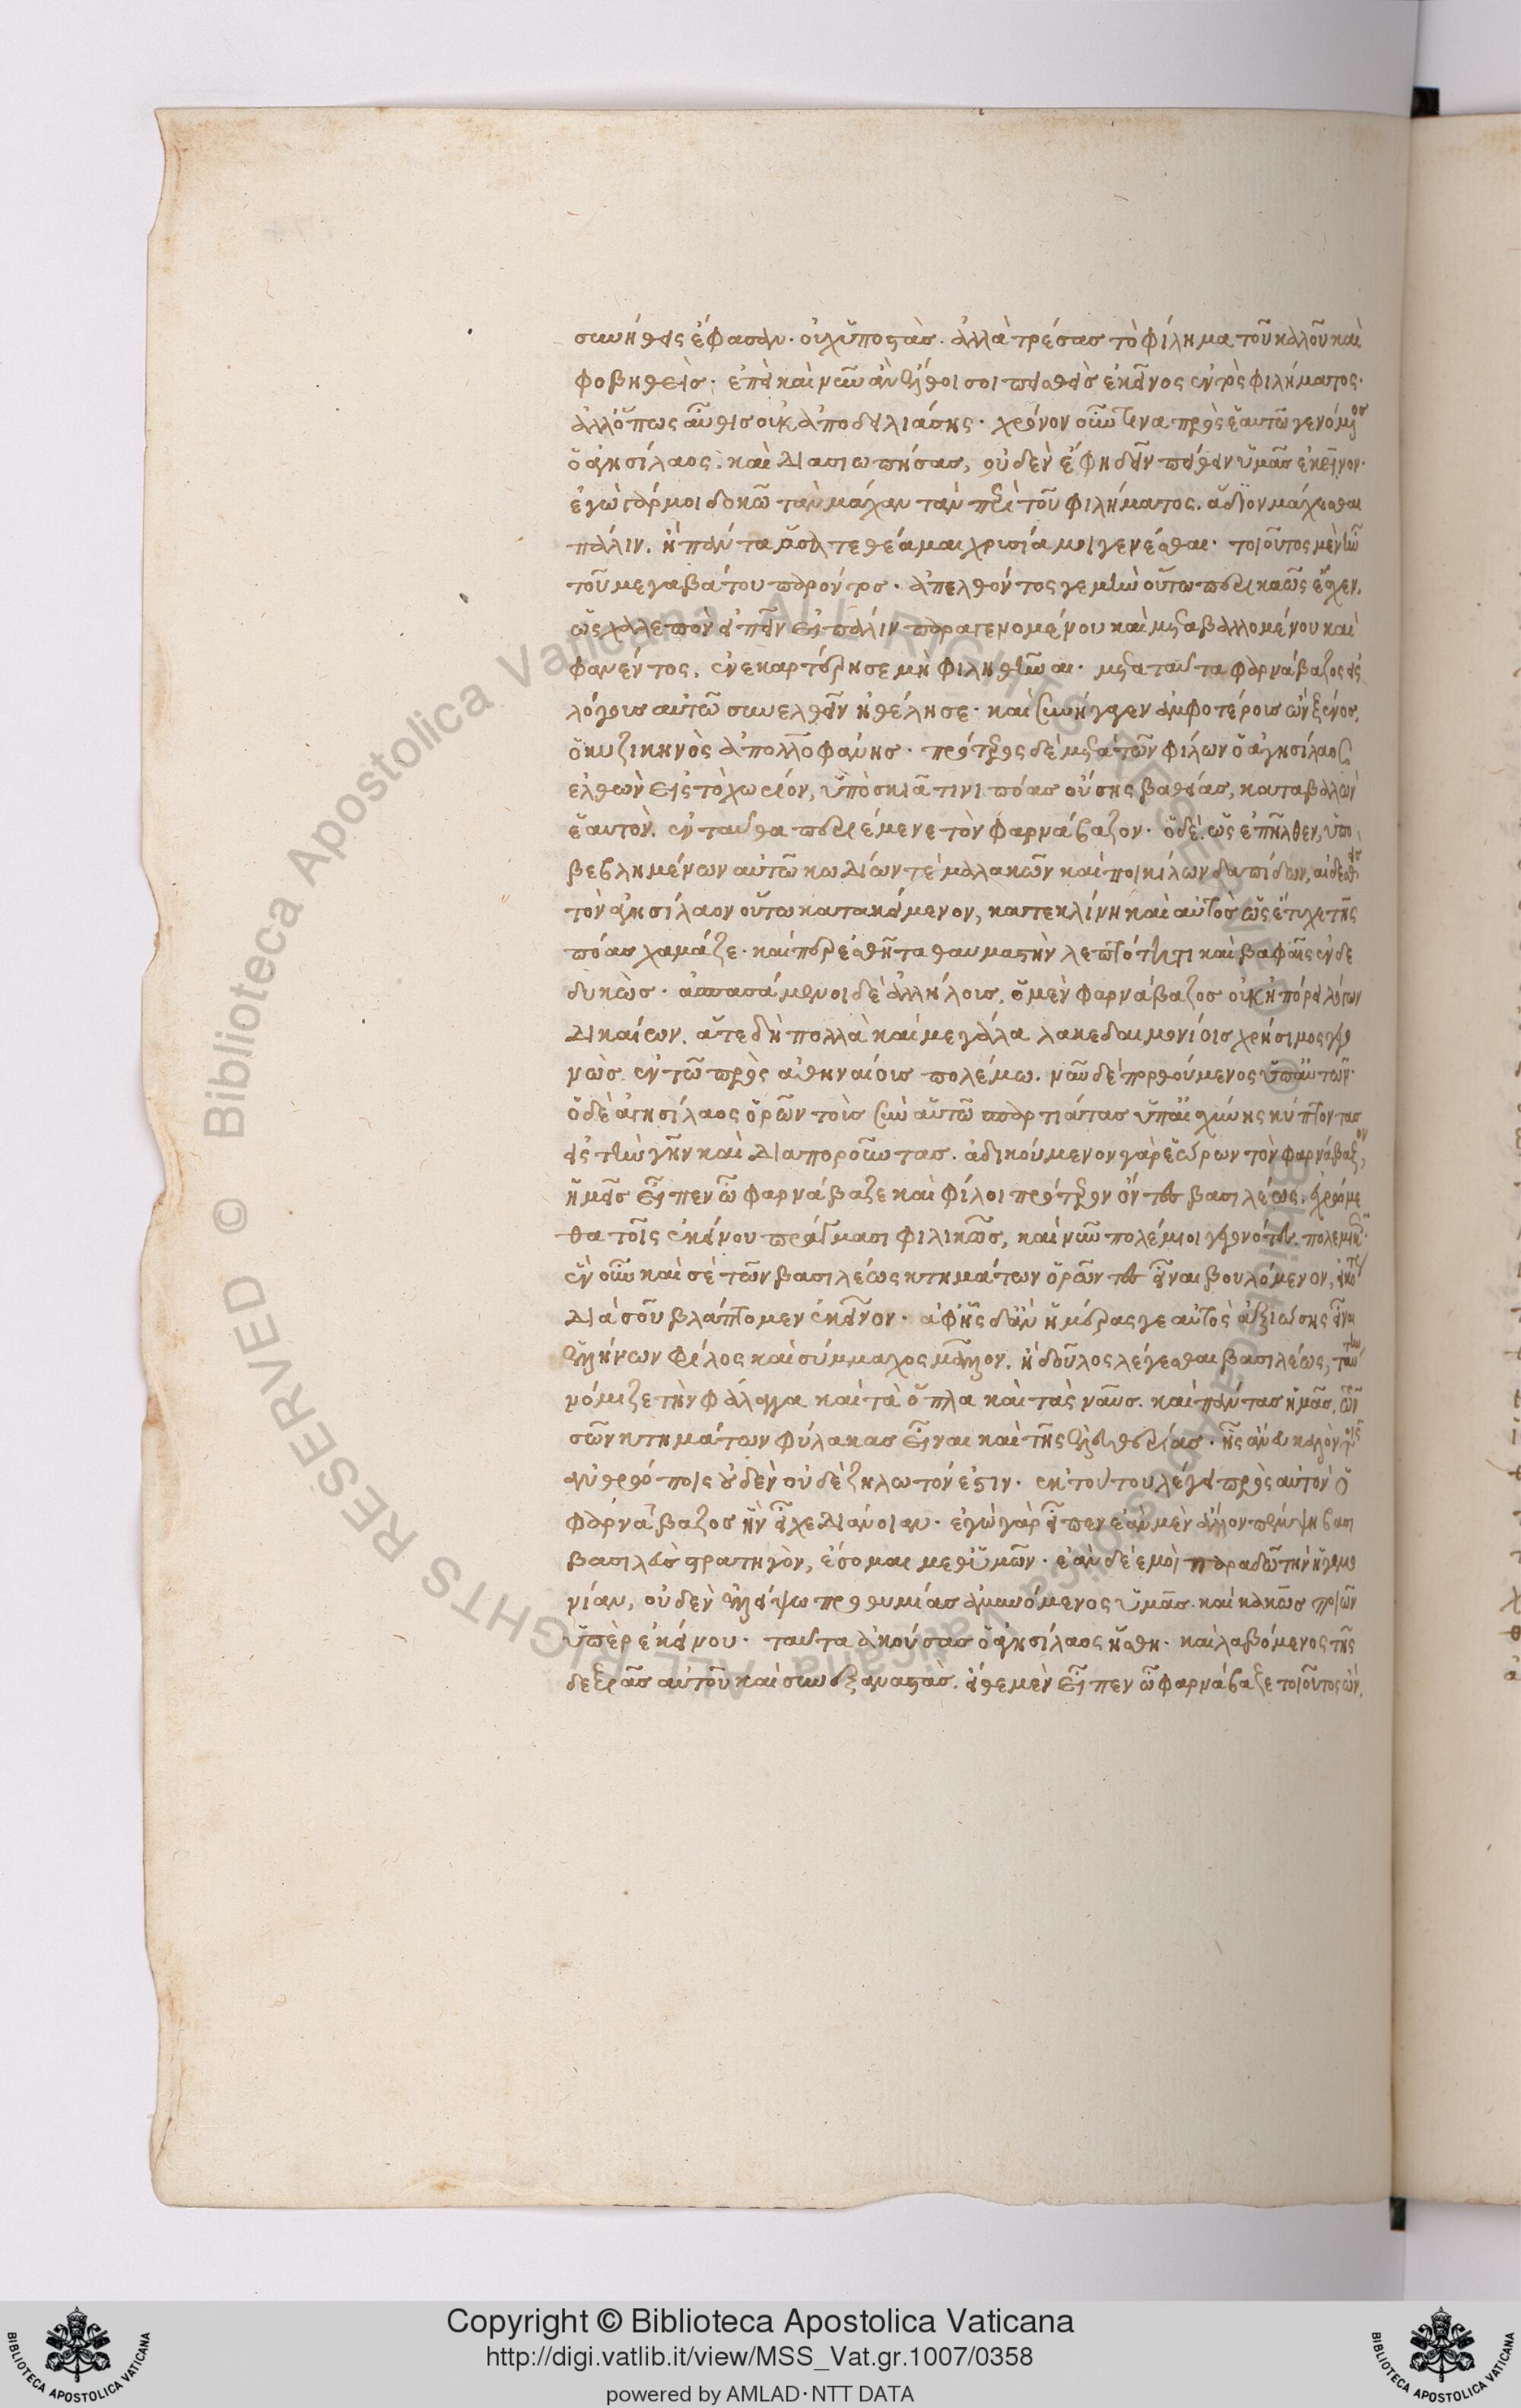 συνήθεις ἔφασαν· οὐχ ὑποστὰς. ἀλλὰ τρέσας τὸ φίλημα τοῦ καλοῦ καὶ
φοβηθεὶς· ἐπεὶ καὶ νῦν ἂν ἔλθοι σοι πεισθεὶς ἐκεῖνος ἐντὸς φιλήματος·
ἀλλ' ὅπως αὖθις οὐκ ἀποδειλιάσῃς· χρόνον οὖν τινα πρὸς ἑαυτῷ γενόμενος
ὁ ἀγησίλαος. καὶ διασιωπήσας, οὐδὲν ἔφη δεῖν πείθειν ὑμᾶς ἐκεῖνον·
ἐγὼ γάρ μοι δοκῶ τὰν μάχαν τὰν περὶ τοῦ φιλήματος. ἅδιον μάχεσθαι
πάλιν. ἢ πάντα ὅσα τεθέαμαι χρυσία μοι γενέσθαι· τοιοῦτος μὲν ἦν
τοῦ μεγαβάτου παρόντος. ἀπελθόντος γε μὴν οὕτω περικαῶς ἔσχεν.
ὡς χαλεπὸν εἰπεῖν εἰ πάλιν παραγενομένου καὶ μεταβαλλομένου καὶ
φανέντος. ἐνεκαρτέρησε μὴ φιληθῆναι· μετὰ ταῦτα φαρνάβαζος εἰς
λόγους αὐτῷ συνελθεῖν ἠθέλησε· καὶ συνήγαγεν ἀμφοτέροις ὢν ξένος.
ὁ κυζικηνὸς ἀπολλοφάνης· πρότερος δὲ μετὰ τῶν φίλων ὁ ἀγησίλαος
ἐλθὼν εἰς τὸ χωρίον, ὑπὸ σκιᾷ τινι πόας οὔσης βαθείας, καταβαλὼν
ἑαυτὸν. ἐνταῦθα περιέμενε τὸν φαρνάβαζον· ὁ δὲ. ὡς ἐπῆλθεν, ὑπο
βεβλημένων αὐτῷ κωδίων τε μαλακῶν καὶ ποικίλων δαπίδων, αἰδεσθεὶς
τὸν ἀγησίλαον οὕτω κατακείμενον, κατεκλίνη καὶ αὐτὸς ὡς ἔτυχε τῆς
πόας χαμάζε· καίπερ ἐσθῆτα θαυμαστὴν λεπτότητι καὶ βαφαῖς ἐνδε
δυκὼς· ἀσπασάμενοι δὲ ἀλλήλους. ὁ μὲν φαρνάβαζος οὐκ ἠπόρει λόγων
δικαίων. ἅτε δὴ πολλὰ καὶ μεγάλα λακεδαιμονίοις χρήσιμος γεγο
νὼς. ἐν τῷ πρὸς ἀθηναίους πολέμῳ. νῦν δὲ πορθούμενος ὑπ' αὐτῶν·
ὁ δὲ ἀγησίλαος ὁρῶν τοὺς σὺν αὐτῷ σπαρτιάτας ὑπ' αἰσχύνης κύπτοντας
εἰς τὴν γῆν καὶ διαποροῦντας. ἀδικούμενον γὰρ ἑώρων τὸν φαρνάβαζον,
ἡμεῖς εἶπεν ὦ φαρνάβαζε καὶ φίλοι πρότερον ὄντες βασιλέως. ἐχρώμε
θα τοῖς ἐκείνου πράγμασι φιλικῶς, καὶ νῦν πολέμιοι γεγονότες. πολεμικῶς·
ἓν οὖν καὶ σὲ τῶν βασιλέως κτημάτων ὁρῶντες εἶναι βουλόμενον, εἰκότως
διὰ σοῦ βλάπτομεν ἐκεῖνον· ἀφ' ἧς δ' ἂν ἡμέρας γε αὐτὸς ἀξιώσῃς εἶναι
ἑλλήνων φίλος καὶ σύμμαχος μᾶλλον. ἢ δοῦλος λέγεσθαι βασιλέως, ταύτην
νόμιζε τὴν φάλαγγα καὶ τὰ ὅπλα καὶ τὰς ναῦς. καὶ πάντας ἡμᾶς. τῶν
σῶν κτημάτων φύλακας εἶναι καὶ τῆς ἐλευθερίας· ἧς ἄνευ καλὸν τοῖς
ἀνθρώποις οὐδὲν οὐδὲ ζηλωτόν ἐστιν· ἐκ τούτου λέγει πρὸς αὐτὸν ὁ
φαρνάβαζος ἣν εἶχε διάνοιαν· ἐγὼ γὰρ εἶπεν ἐὰν μὲν ἄλλον πέμψῃ βασι
βασιλεὺς στρατηγὸν, ἔσομαι μεθ' ὑμῶν· ἐὰν δὲ ἐμοὶ παραδῷ τὴν ἡγεμο
νίαν, οὐδὲν ἐλλείψω προθυμίας ἀμυνόμενος ὑμᾶς. καὶ κακῶς ποιῶν
ὑπὲρ ἐκείνου· ταῦτα ἀκούσας ὁ ἀγησίλαος ἥσθη· καὶ λαβόμενος τῆς
δεξιᾶς αὐτοῦ καὶ συνεξαναστὰς. εἴθε μὲν εἶπεν ὦ φαρνάβαζε τοιοῦτος ὢν.
Copyright © Biblioteca Apostolica Vaticana
http://digi.vatlib.it/view/MSS_Vat.gr.1007/0358
powered by AMLAD·NTT DATA